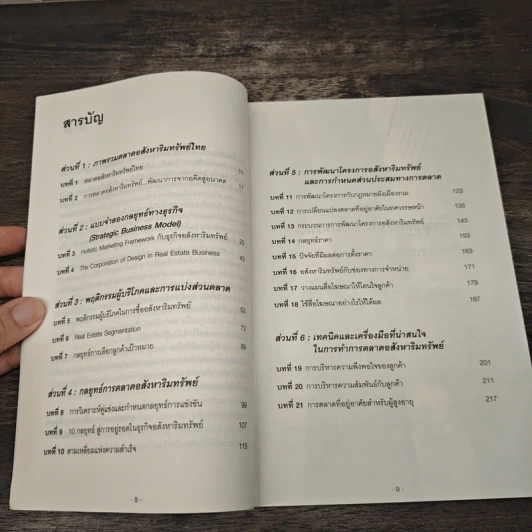 สารบัญ
ส่วนที่ 1 : ภาพรวมตลาดอสังหาริมทรัพย์ไทย
บทที่ 1 ตลาดอสังหาริมทรัพย์ไทย 11
บทที่ 2 การตลาดอสังหาริมทรัพย์...พัฒนาการจากอดีตสู่อนาคต 17
ส่วนที่ 2 : แบบจำลองกลยุทธ์ทางธุรกิจ
(Strategic Business Model)
บทที่ 3 Holistic Marketing Framework กับธุรกิจอสังหาริมทรัพย์ 25
บทที่ 4 The Corporation of Design in Real Estate Business 45
ส่วนที่ 3 : พฤติกรรมผู้บริโภคและการแบ่งส่วนตลาด
บทที่ 5 พฤติกรรมผู้บริโภคในการซื้ออสังหาริมทรัพย์ 53
บทที่ 6 Real Estate Segmentation 73
บทที่ 7 กลยุทธ์การเลือกลูกค้าเป้าหมาย 89
ส่วนที่ 4 : กลยุทธ์การตลาดอสังหาริมทรัพย์
บทที่ 8 การวิเคราะห์คู่แข่งและกำหนดกลยุทธ์การแข่งขัน 99
บทที่ 9 10 กลยุทธ์ สู่การอยู่รอดในธุรกิจอสังหาริมทรัพย์ 107
บทที่ 10 สามเหลี่ยมแห่งความสำเร็จ 115
- 8 -
ส่วนที่ 5 : การพัฒนาโครงการอสังหาริมทรัพย์
และการกำหนดส่วนประสมทางการตลาด
บทที่ 11 การพัฒนาโครงการกับกฎหมายผังเมืองรวม 123
บทที่ 12 การเปลี่ยนแปลงตลาดที่อยู่อาศัยในทศวรรษหน้า 135
บทที่ 13 กระบวนการการพัฒนาโครงการอสังหาริมทรัพย์ 143
บทที่ 14 กลยุทธ์ราคา 153
บทที่ 15 ปัจจัยที่มีผลต่อการตั้งราคา 163
บทที่ 16 อสังหาริมทรัพย์กับช่องทางการจำหน่าย 171
บทที่ 17 วางแผนสื่อโฆษณาให้โดนใจลูกค้า 179
บทที่ 18 ใช้สื่อโฆษณาอย่างไรให้ได้ผล 187
ส่วนที่ 6 : เทคนิคและเครื่องมือที่น่าสนใจ
ในการทำการตลาดอสังหาริมทรัพย์
บทที่ 19 การบริหารความพึงพอใจของลูกค้า 201
บทที่ 20 การบริหารความสัมพันธ์กับลูกค้า 211
บทที่ 21 การตลาดที่อยู่อาศัยสำหรับผู้สูงอายุ 217
- 9 -